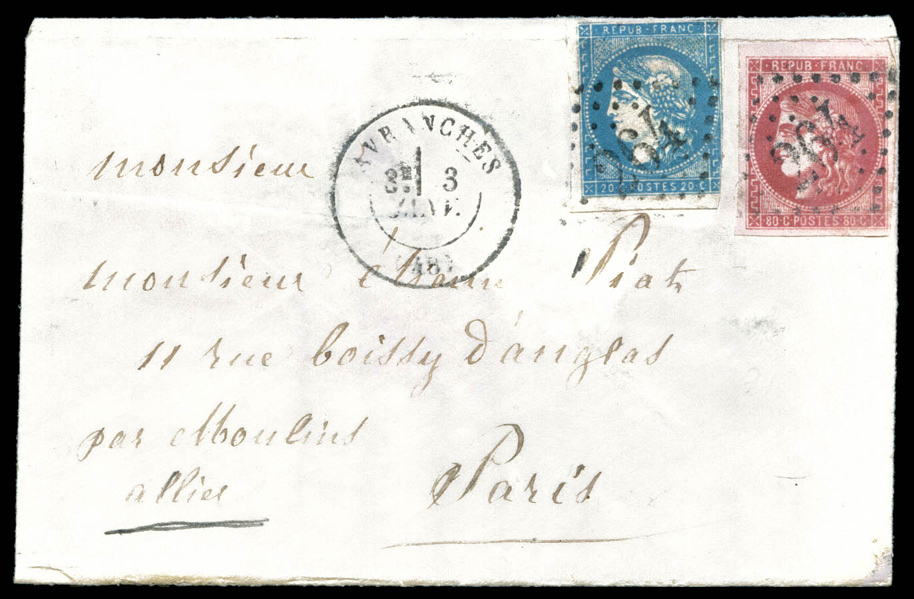 REPUB·FRANC
20·C·POSTES·20·C
REPUB·FRANC·
80·C·POSTES·80·C
264
AVRANCHES
3 JANV.
(48)
monsieur
monsieur Piat
11 rue boissy d'anglas
par Moulins
allier
Paris